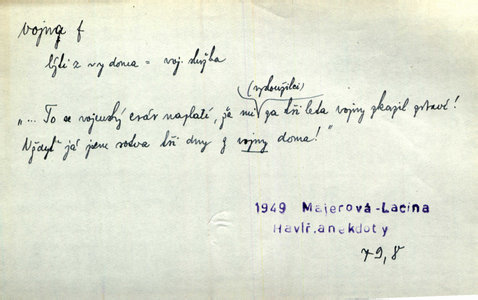 vojna f
býti z vojny doma = voj. služba
(vysloužilci)
"... To se vojenský erár naplatí, že mi za tři léta vojny zkazil!
Vždyť já jsem sotva tři dny z vojny doma!"
1949 Majerová-Lacina
Havlř.anekdoty
79,8